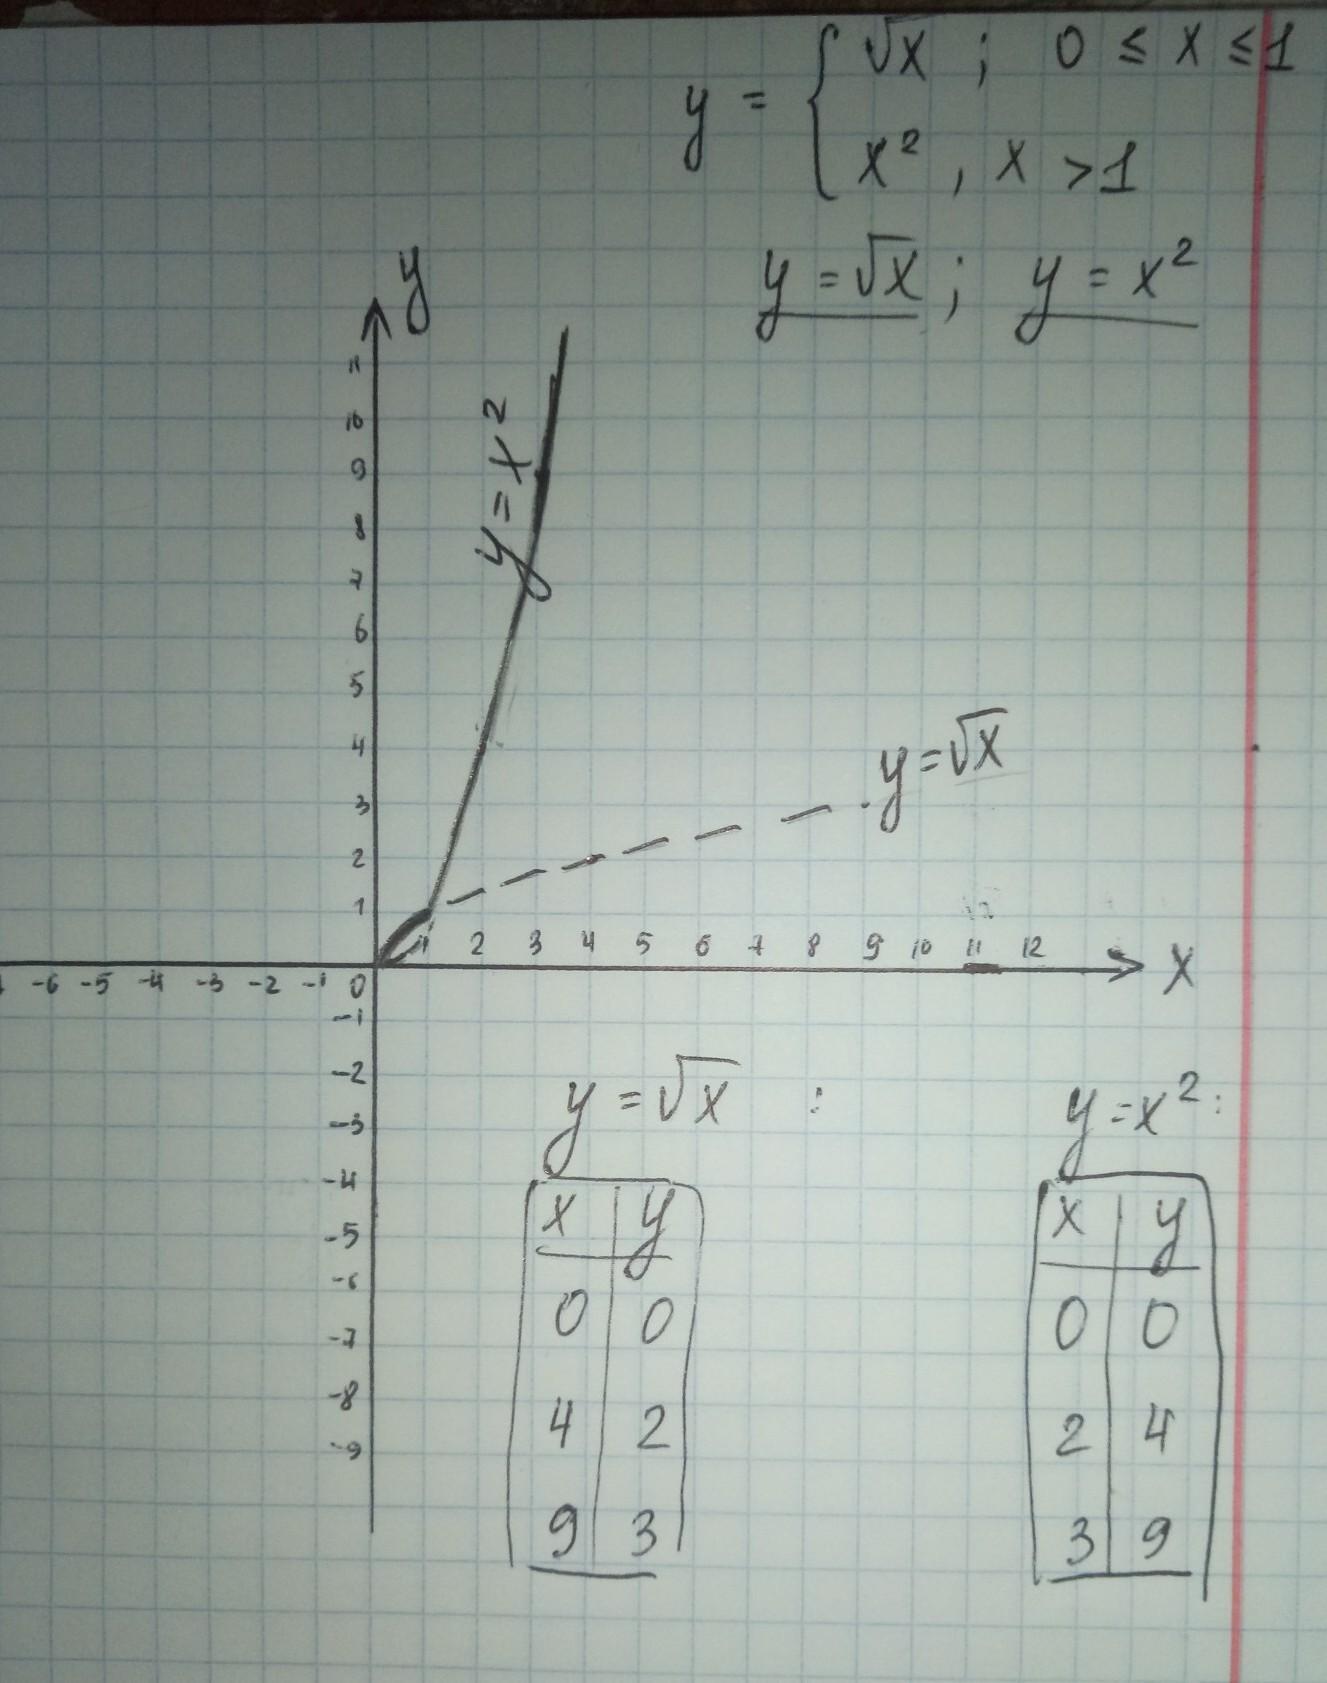 y = { √x ; 0 ≤ x ≤ 1
x² , x > 1
y = √x ; y = x²
y
11
10
9
8
7
6
5
4
3
2
1
y = x²
y = √x
1 2 3 4 5 6 7 8 9 10 11 12
x
-6 -5 -4 -3 -2 -1 0
-1
-2
-3
-4
-5
-6
-7
-8
-9
y = √x :
x y
0 0
4 2
9 3
y = x² :
x y
0 0
2 4
3 9